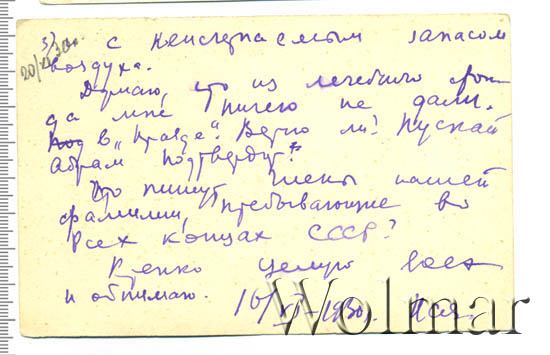 3) с неисчерпаемым запасом
20/XI 30г.
воздуха.
Думаю, что из лечебного фон
да мне ничего не дали.
в „Правде". Верно ли? Пускай
Абрам подтвердит.
Что пишут члены нашей
фамилии, пребывающие во
всех концах СССР?
Крепко целую всех
и обнимаю. 16/XI-1930г. Ася.
Wolmar